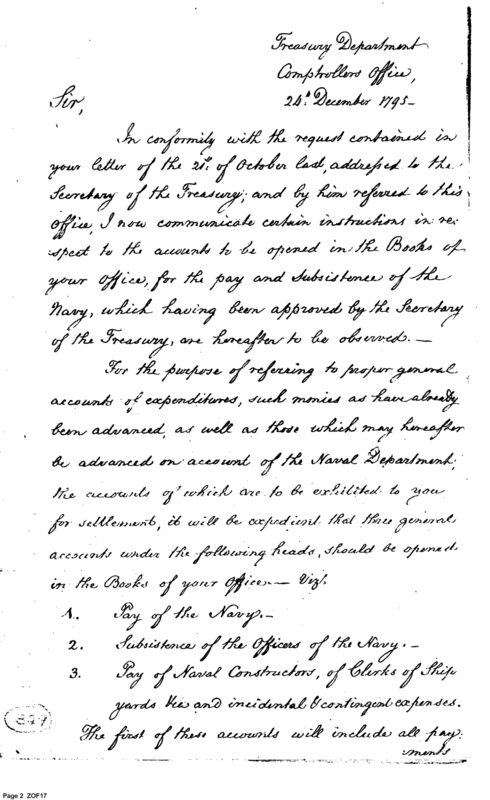 Treasury Department
Comptrollers Office,
24th December 1795-
Sir,
In conformity with the request contained in
your letter of the of October last, addressed to the
Secretary of the Treasury; and by him referred to this
Office, I now communicate certain instructions in re-
spect to the accounts to be opened in the Books of
your Office, for the pay and Subsistence of the
Navy, which having been approved by the Secretary
of the Treasury, are hereafter to be observed. —
For the purpose of referring to proper general
accounts of expenditures, such monies as have already
been advanced, as well as those which may hereafter
be advanced on account of the Naval Department;
the accounts of which are to be exhibited to you
for settlement, it will be expedient that three general
accounts under the following heads, should be opened
in the Books of your Office — Vizt.
1. Pay of the Navy. -
2. Subsistence of the Officers of the Navy. -
3. Pay of Naval Constructors, of Clerks of Ship
yards &ca and incidental & contingent expenses.
The first of these accounts will include all pay:
:ments
Page 2 ZOF17